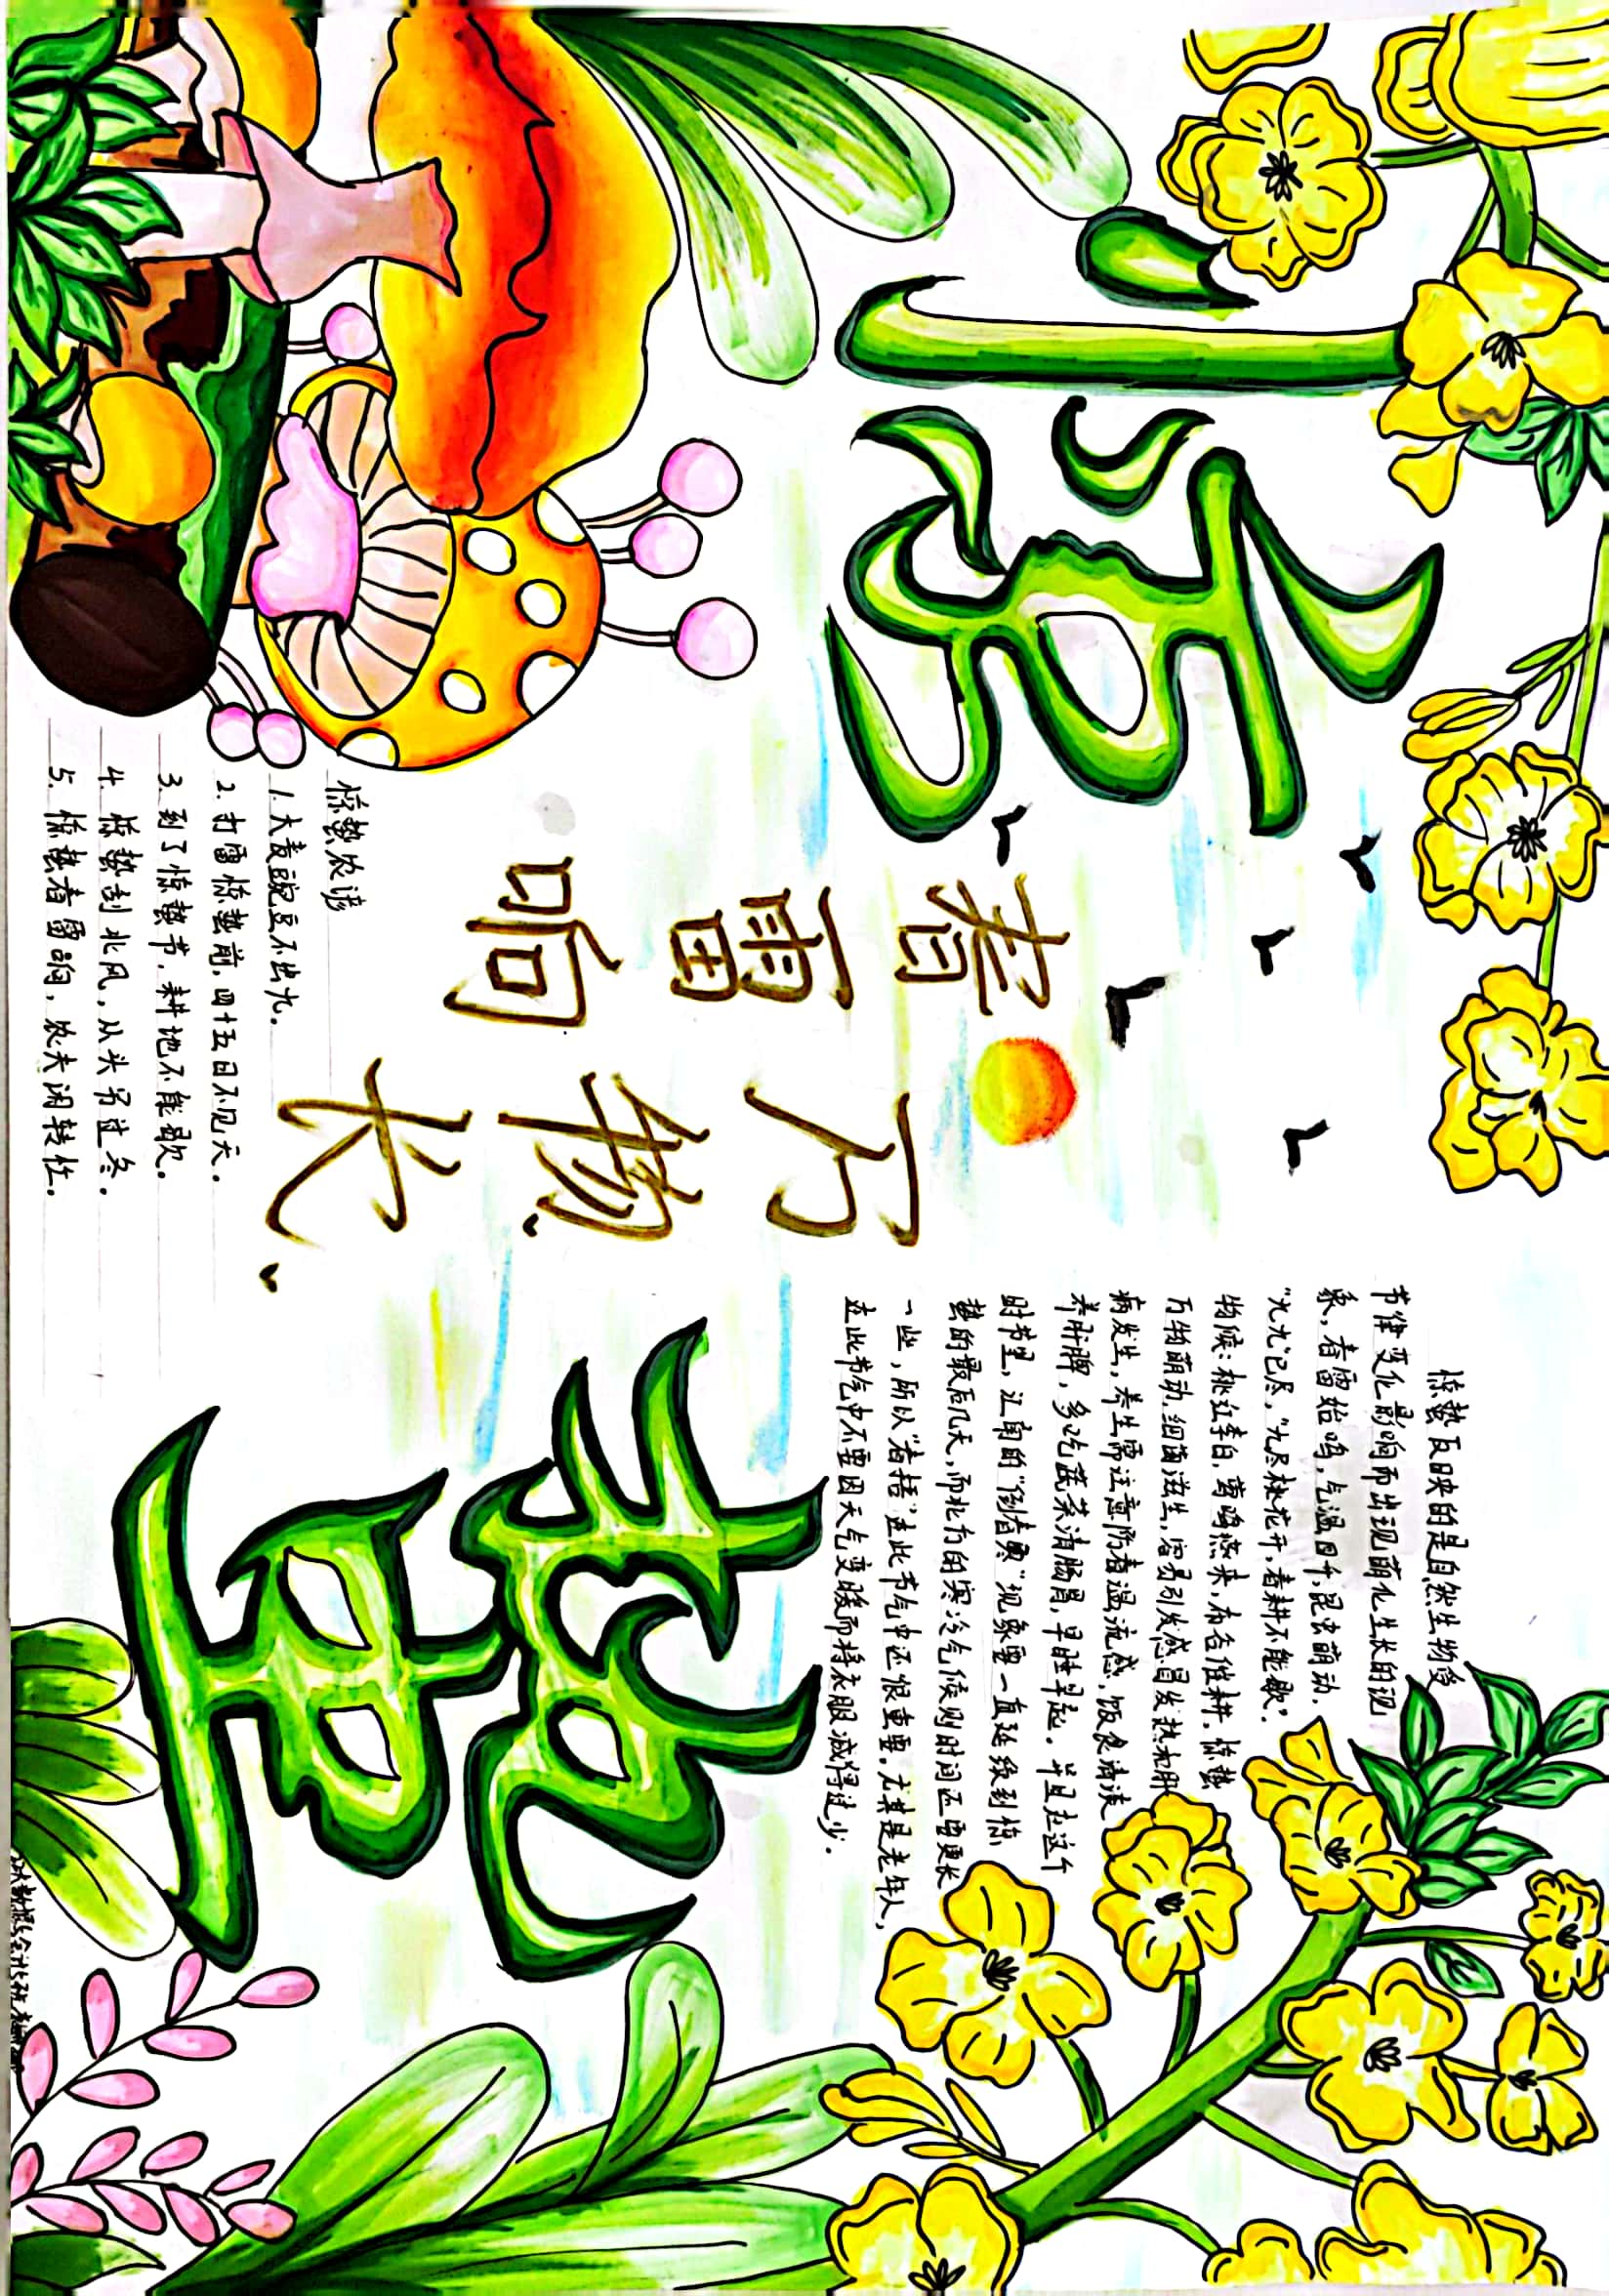 惊蛰
春雷响
万物长
惊蛰反映的是自然生物受
节律变化影响而出现萌化生长的现
象，春雷始鸣，气温回升，昆虫萌动。
“九九”已尽，“九尽桃花开，春耕不能歇”。
物候：桃红李白，莺鸣燕来，布谷催耕。惊蛰
万物萌动，细菌滋生，容易引发感冒发热和肝
病发生，养生需注意防春温流感，饭食清淡
养肝脾，多吃蔬菜清肠胃，早睡早起。并且在这个
时节里，江南的“倒春寒”现象要一直延续到惊
蛰的最后几天，而北方的寒冷气候则时间还要更长
一些，所以“春捂”在此节气中还很重要。尤其是老年人，
在此节气中不要因天气变暖而将衣服减得过少。
惊蛰农谚
1.大麦豌豆不出九。
2.打雷惊蛰前，四十五日不见天。
3.到了惊蛰节，耕地不能歇。
4.惊蛰刮北风，从头另过冬。
5.惊蛰春雷响，农夫闲转忙。